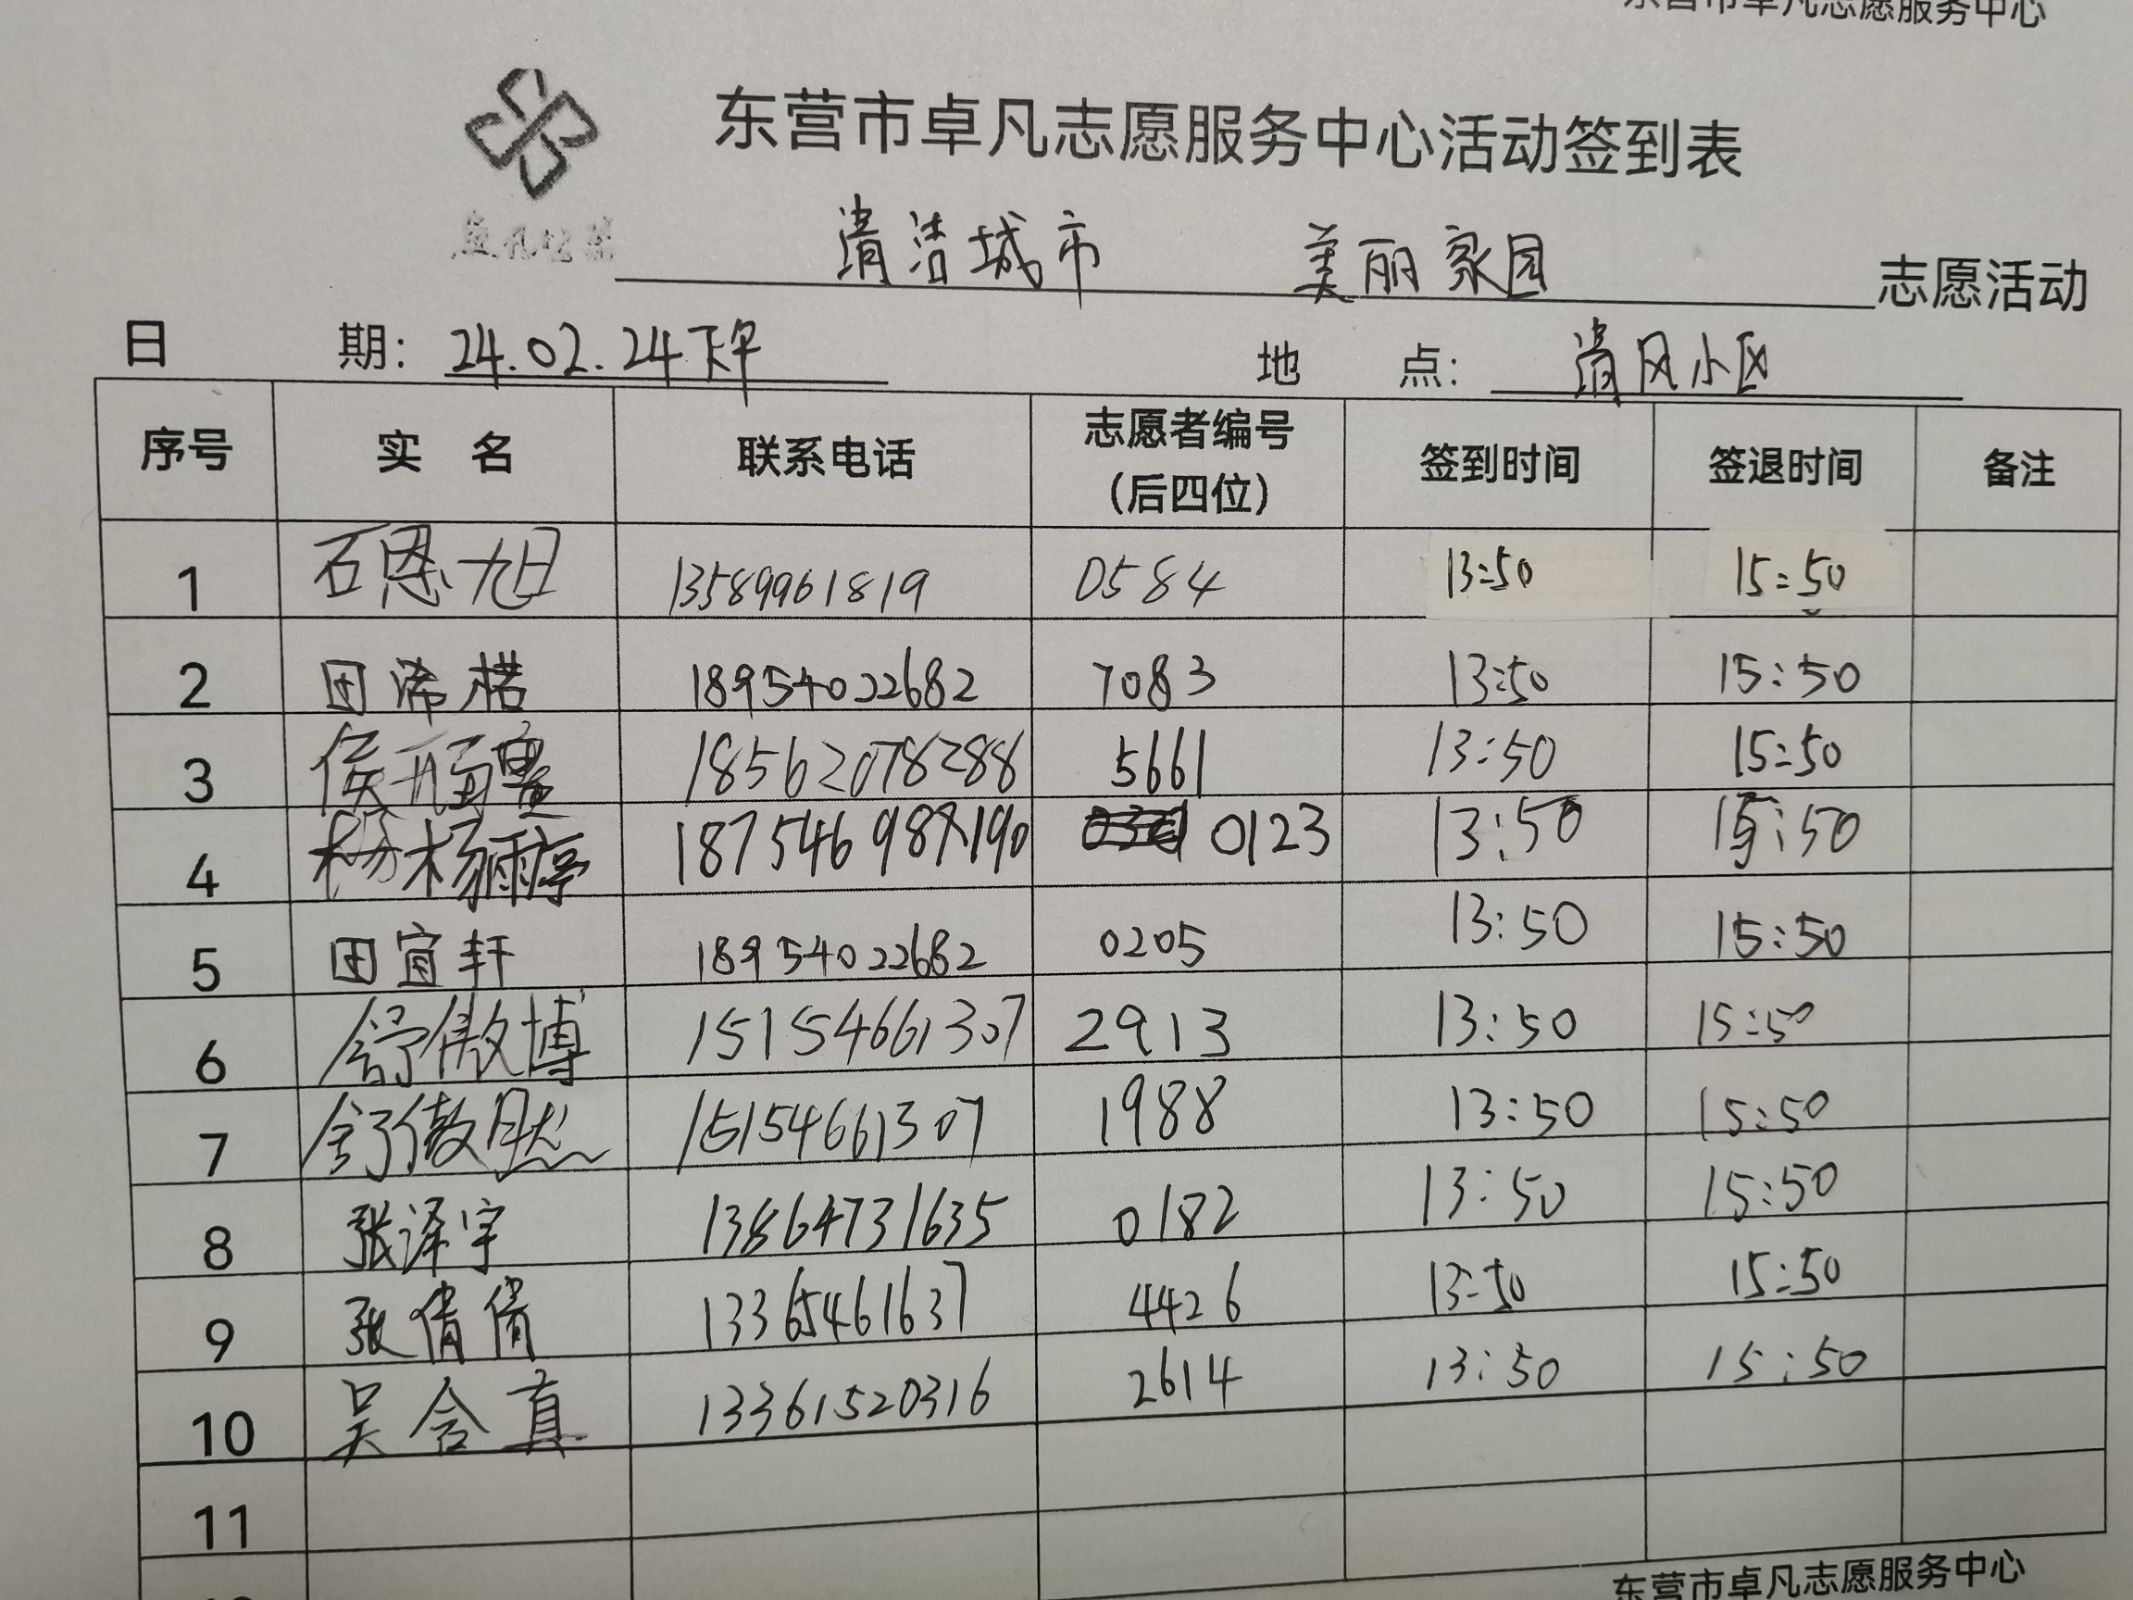 东营市卓凡志愿服务中心
东营市卓凡志愿服务中心活动签到表
清洁城市 美丽家园 志愿活动
日 期: 24.02.24下午 地 点: 清风小区
序号 实 名 联系电话 志愿者编号(后四位) 签到时间 签退时间 备注
1 石恩旭 13589961819 0584 13:50 15:50
2 田浠楉 18954022682 7083 13:50 15:50
3 侯 18562078288 5661 13:50 15:50
4 杨雨婷 0123 13:50 15:50
5 田宜轩 18954022682 0205 13:50 15:50
6 舒傲博 15154661307 2913 13:50 15:50
7 舒傲然 15154661307 1988 13:50 15:50
8 张泽宇 13864731635 0182 13:50 15:50
9 张倩倩 13365461637 4426 13:50 15:50
10 吴含真 13361520316 2614 13:50 15:50
11
东营市卓凡志愿服务中心